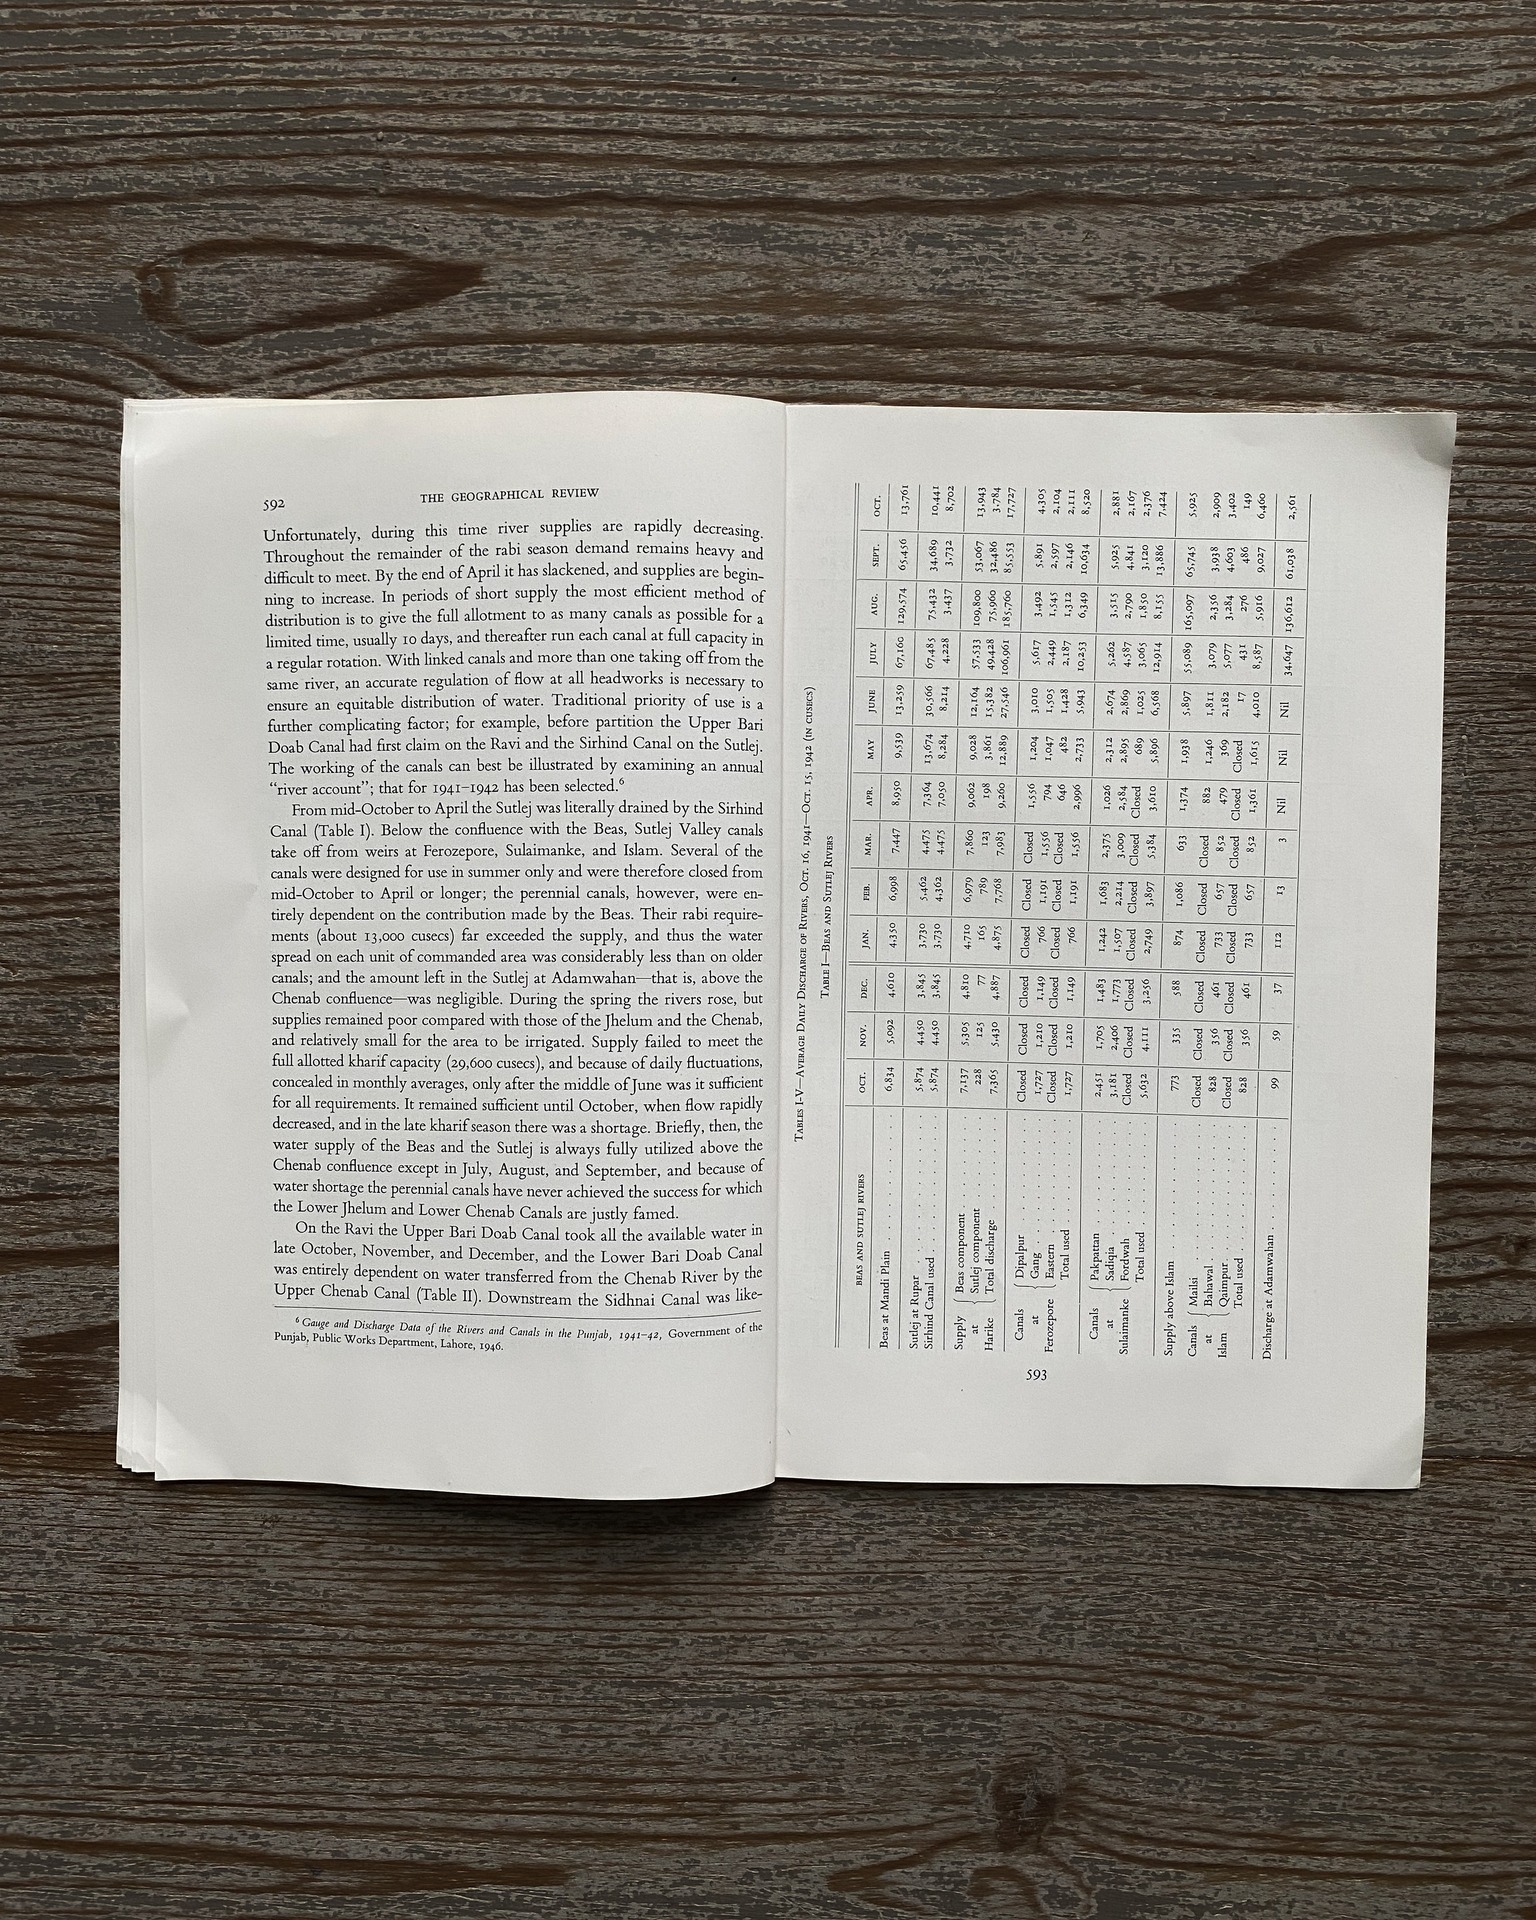 592
THE GEOGRAPHICAL REVIEW
Unfortunately, during this time river supplies are rapidly decreasing.
Throughout the remainder of the rabi season demand remains heavy and
difficult to meet. By the end of April it has slackened, and supplies are begin-
ning to increase. In periods of short supply the most efficient method of
distribution is to give the full allotment to as many canals as possible for a
limited time, usually 10 days, and thereafter run each canal at full capacity in
a regular rotation. With linked canals and more than one taking off from the
same river, an accurate regulation of flow at all headworks is necessary to
ensure an equitable distribution of water. Traditional priority of use is a
further complicating factor; for example, before partition the Upper Bari
Doab Canal had first claim on the Ravi and the Sirhind Canal on the Sutlej.
The working of the canals can best be illustrated by examining an annual
“river account”; that for 1941–1942 has been selected.⁶
From mid-October to April the Sutlej was literally drained by the Sirhind
Canal (Table I). Below the confluence with the Beas, Sutlej Valley canals
take off from weirs at Ferozepore, Sulaimanke, and Islam. Several of the
canals were designed for use in summer only and were therefore closed from
mid-October to April or longer; the perennial canals, however, were en-
tirely dependent on the contribution made by the Beas. Their rabi require-
ments (about 13,000 cusecs) far exceeded the supply, and thus the water
spread on each unit of commanded area was considerably less than on older
canals; and the amount left in the Sutlej at Adamwahan—that is, above the
Chenab confluence—was negligible. During the spring the rivers rose, but
supplies remained poor compared with those of the Jhelum and the Chenab,
and relatively small for the area to be irrigated. Supply failed to meet the
full allotted kharif capacity (29,600 cusecs), and because of daily fluctuations,
concealed in monthly averages, only after the middle of June was it sufficient
for all requirements. It remained sufficient until October, when flow rapidly
decreased, and in the late kharif season there was a shortage. Briefly, then, the
water supply of the Beas and the Sutlej is always fully utilized above the
Chenab confluence except in July, August, and September, and because of
water shortage the perennial canals have never achieved the success for which
the Lower Jhelum and Lower Chenab Canals are justly famed.
On the Ravi the Upper Bari Doab Canal took all the available water in
late October, November, and December, and the Lower Bari Doab Canal
was entirely dependent on water transferred from the Chenab River by the
Upper Chenab Canal (Table II). Downstream the Sidhnai Canal was like-
⁶ Gauge and Discharge Data of the Rivers and Canals in the Punjab, 1941–42, Government of the
Punjab, Public Works Department, Lahore, 1946.
TABLES I-V—AVERAGE DAILY DISCHARGE OF RIVERS, OCT. 16, 1941—OCT. 15, 1942 (IN CUSECS)
TABLE I—BEAS AND SUTLEJ RIVERS
BEAS AND SUTLEJ RIVERS OCT. NOV. DEC. JAN. FEB. MAR. APR. MAY JUNE JULY AUG. SEPT. OCT.
Beas at Mandi Plain 6,834 5,092 4,610 4,350 6,998 7,447 8,950 9,539 13,259 67,160 129,574 65,456 13,761
Sutlej at Rupar 5,874 4,450 3,845 3,730 5,462 4,475 7,364 13,674 30,566 67,485 75,432 34,689 10,441
Sirhind Canal used 5,874 4,450 3,845 3,730 4,362 4,475 7,050 8,284 8,214 4,228 3,437 3,732 8,702
Supply Beas component 7,137 5,305 4,810 4,710 6,979 7,860 9,062 9,028 12,164 57,533 109,800 53,067 13,943
at Sutlej component 228 125 77 165 789 123 198 3,861 15,382 49,428 75,960 32,486 3,784
Harike Total discharge 7,365 5,430 4,887 4,875 7,768 7,983 9,260 12,889 27,546 106,961 185,760 85,553 17,727
Canals Dipalpur Closed Closed Closed Closed Closed Closed 1,556 1,204 3,010 5,617 3,492 5,891 4,305
at Gang 1,727 1,210 1,149 766 1,191 1,556 794 1,047 1,505 2,449 1,545 2,597 2,104
Ferozepore Eastern Closed Closed Closed Closed Closed Closed 646 482 1,428 2,187 1,312 2,146 2,111
Total used 1,727 1,210 1,149 766 1,191 1,556 2,996 2,733 5,943 10,253 6,349 10,634 8,520
Canals Pakpattan 2,451 1,705 1,483 1,242 1,683 2,375 1,026 2,312 2,674 5,262 3,515 5,925 2,881
at Sadiqia 3,181 2,406 1,773 1,507 2,214 3,009 2,584 2,895 2,869 4,587 2,790 4,841 2,167
Sulaimanke Fordwah Closed Closed Closed Closed Closed Closed Closed 689 1,025 3,065 1,850 3,120 2,376
Total used 5,632 4,111 3,256 2,749 3,897 5,384 3,610 5,896 6,568 12,914 8,155 13,886 7,424
Supply above Islam 773 335 588 874 1,086 633 1,374 1,938 5,897 55,089 165,097 65,745 5,925
Canals Mailsi Closed Closed Closed Closed Closed Closed 882 1,246 1,811 3,079 2,356 3,938 2,909
at Bahawal 828 356 461 733 657 852 479 369 2,182 5,077 3,284 4,603 3,402
Islam Qaimpur Closed Closed Closed Closed Closed Closed Closed Closed 17 431 276 486 149
Total used 828 356 461 733 657 852 1,361 1,615 4,010 8,587 5,916 9,027 6,460
Discharge at Adamwahan 99 59 37 112 13 3 Nil Nil Nil 34,647 136,612 61,038 2,561
593